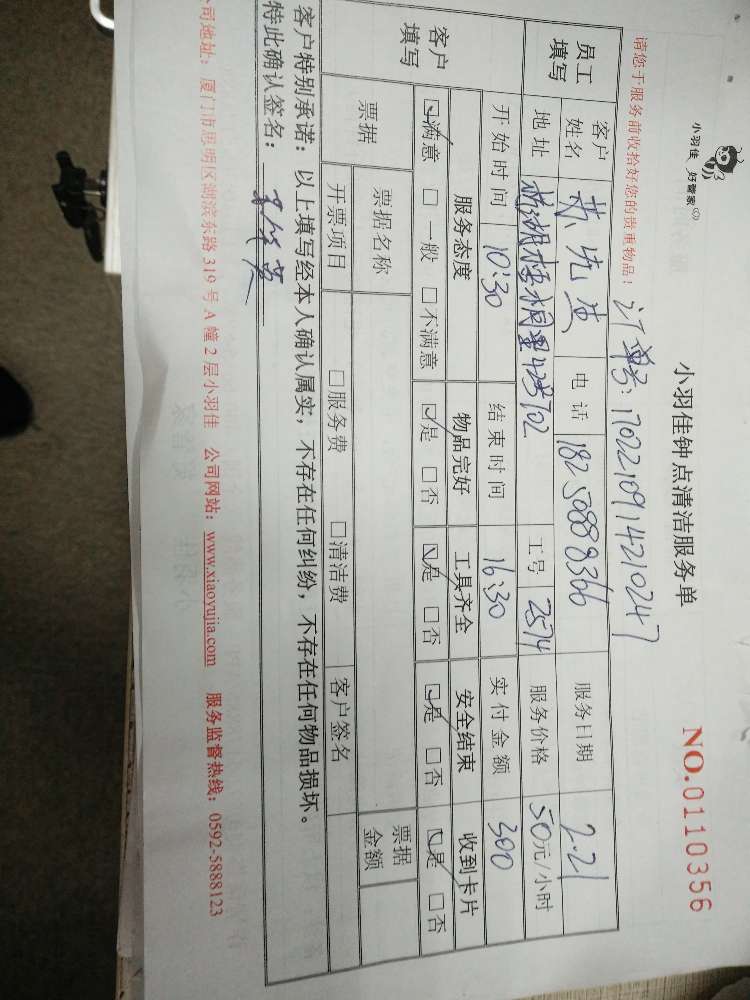 小羽佳 好管家
小羽佳钟点清洁服务单
NO.0110356
请您于服务前收拾好您的贵重物品!
订单号: 1702210914210247
员工填写
客户姓名 苏先生 电话 18250888366 服务日期 2.21
地址 梧桐里425702 工号 2574 服务价格 50元/小时
开始时间 10:30 结束时间 16:30 实付金额 300
客户填写
服务态度 物品完好 工具齐全 安全结束 收到卡片
☑满意 □一般 □不满意 ☑是 □否 ☑是 □否 ☑是 □否 ☑是 □否
票据 票据名称 票据金额
开票项目 □服务费 □清洁费 客户签名
客户特别承诺:以上填写经本人确认属实,不存在任何纠纷,不存在任何物品损坏。
特此确认签名:
公司地址:厦门市思明区湖滨东路319号A幢2层小羽佳 公司网站:www.xiaoyujia.com 服务监督热线:0592-5888123